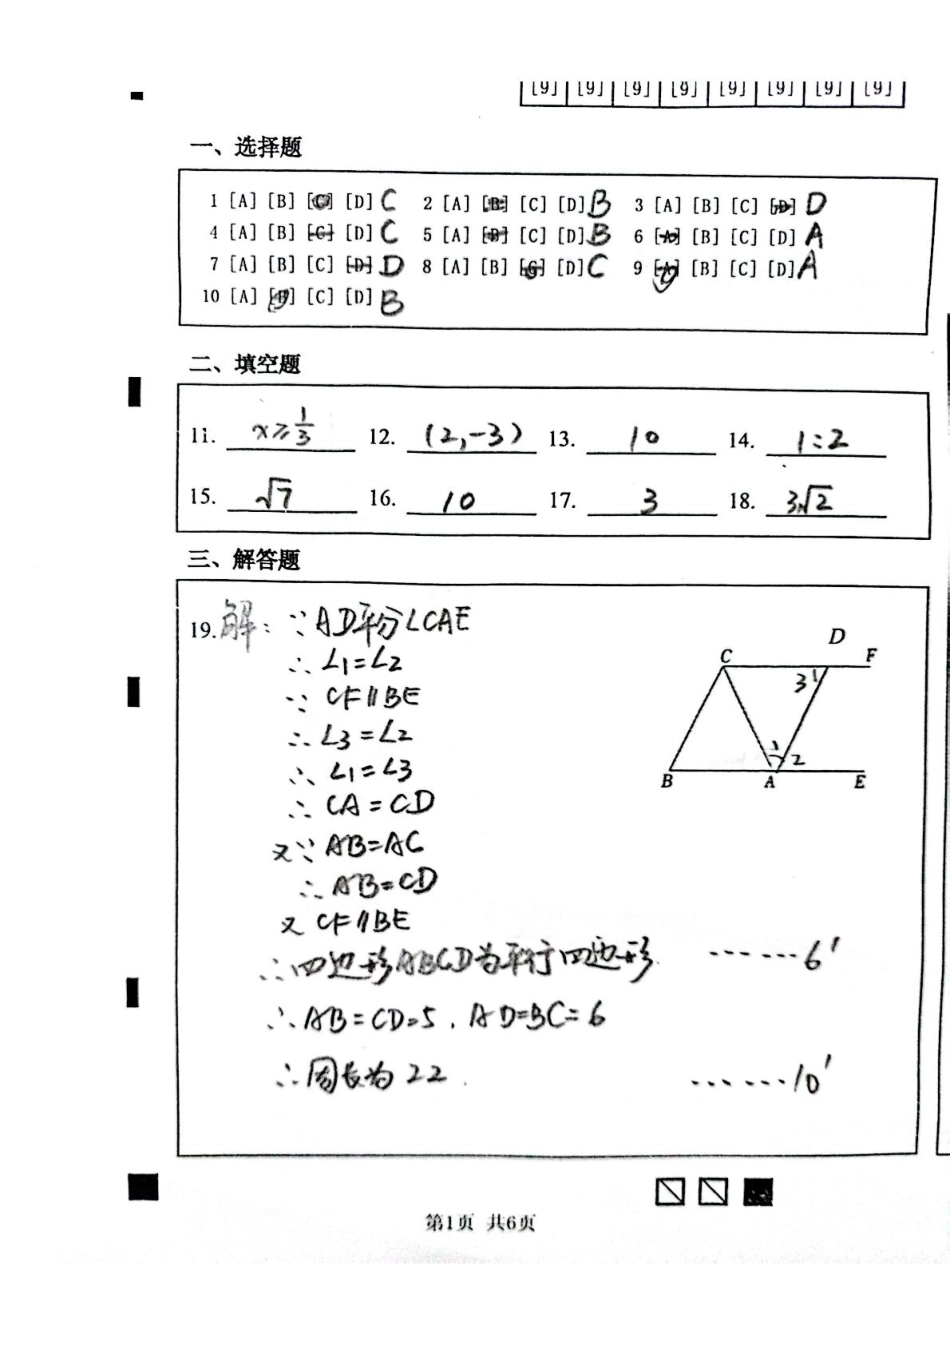 [9] [9] [9] [9] [9] [9] [9] [9]
一、选择题
1 [A] [B] [C] [D] C 2 [A] [B] [C] [D] B 3 [A] [B] [C] [D] D
4 [A] [B] [C] [D] C 5 [A] [B] [C] [D] B 6 [A] [B] [C] [D] A
7 [A] [B] [C] [D] D 8 [A] [B] [C] [D] C 9 [A] [B] [C] [D] A
10 [A] [B] [C] [D] B
二、填空题
11. x≥1/3 12. (2,-3) 13. 10 14. 1:2
15. √7 16. 10 17. 3 18. 3√2
三、解答题
19.解: ∵AD平分∠CAE
∴∠1=∠2
∵CF∥BE
∴∠3=∠2
∴∠1=∠3
∴CA=CD
又∵AB=AC
∴AB=CD
又CF∥BE
∴四边形ABCD为平行四边形 ······6'
∴AB=CD=5,AD=BC=6
∴周长为22. ······10'
D
C F
3
1 2
B A E
第1页 共6页